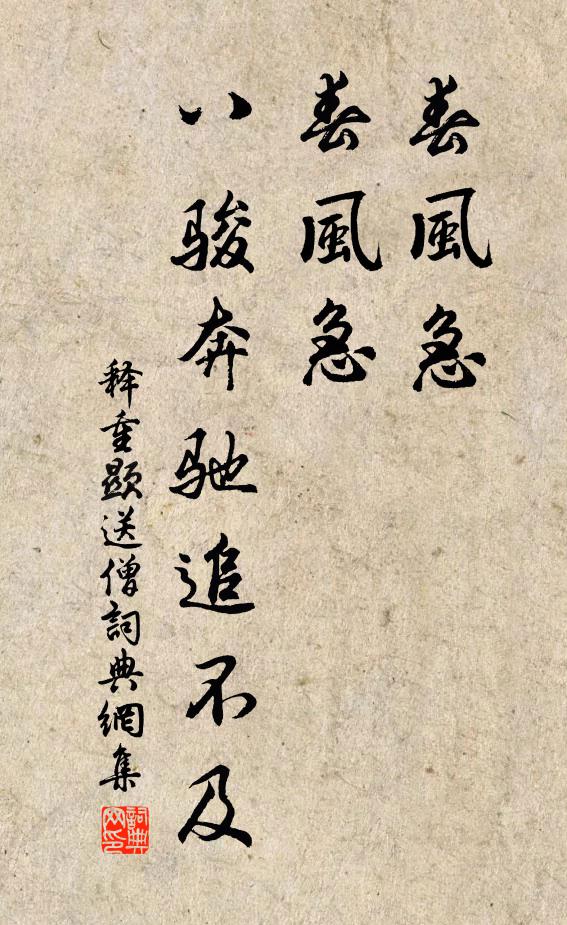 春風急
春風急
八骏奔驰追不及
释重顯送僧詞典網集
詞典
网印